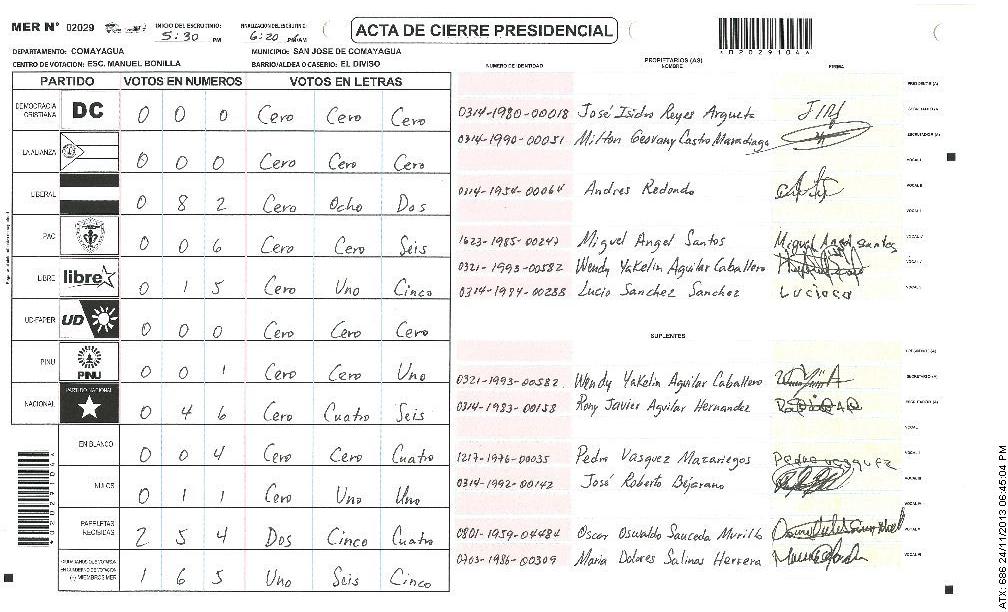 MER N° 02029 INICIO DEL ESCRUTINIO: 5:30 PM FINALIZACION DEL ESCRUTINIO: 6:20 PM/AM ACTA DE CIERRE PRESIDENCIAL
*02029104*
DEPARTAMENTO: COMAYAGUA MUNICIPIO: SAN JOSE DE COMAYAGUA
CENTRO DE VOTACION: ESC. MANUEL BONILLA BARRIO/ALDEA O CASERIO: EL DIVISO
PARTIDO VOTOS EN NUMEROS VOTOS EN LETRAS
DEMOCRACIA CRISTIANA DC 0 0 0 Cero Cero Cero
LA ALIANZA 0 0 0 Cero Cero Cero
LIBERAL 0 8 2 Cero Ocho Dos
PAC 0 0 6 Cero Cero Seis
LIBRE libre 0 1 5 Cero Uno Cinco
UD-FAPER UD 0 0 0 Cero Cero Cero
PINU PINU 0 0 1 Cero Cero Uno
NACIONAL PARTIDO NACIONAL 0 4 6 Cero Cuatro Seis
EN BLANCO 0 0 4 Cero Cero Cuatro
NULOS 0 1 1 Cero Uno Uno
PAPELETAS RECIBIDAS 2 5 4 Dos Cinco Cuatro
(+) MIEMBROS MER 1 6 5 Uno Seis Cinco
NUMERO DE IDENTIDAD PROPIETARIOS (AS) NOMBRE FIRMA
PRESIDENTE (A)
0314-1980-00018 José Isidro Reyes Argueta SECRETARIO (A)
0314-1990-00051 Milton Geovany Castro Maradiaga ESCRUTADOR (A)
VOCAL I
0314-1954-00064 Andres Redondo VOCAL II
1623-1985-00247 Miguel Angel Santos Miguel Angel Santos
0321-1993-00582 Wendy Yakelin Aguilar Caballero
0314-1994-00288 Lucio Sanchez Sanchez
SUPLENTES
PRESIDENTE (A)
0321-1993-00582 Wendy Yakelin Aguilar Caballero SECRETARIO (A)
0314-1983-00158 Rony Javier Aguilar Hernandez ESCRUTADOR (A)
VOCAL I
1217-1976-00035 Pedro Vasquez Mazariegos Pedro vasquez
0314-1992-00142 José Roberto Bejarano
0801-1959-04484 Oscar Oswaldo Sauceda Murillo
0703-1986-00309 Maria Dolores Salinas Herrera
*02029104*
ATX: 686 24/11/2013 06:45:04 PM